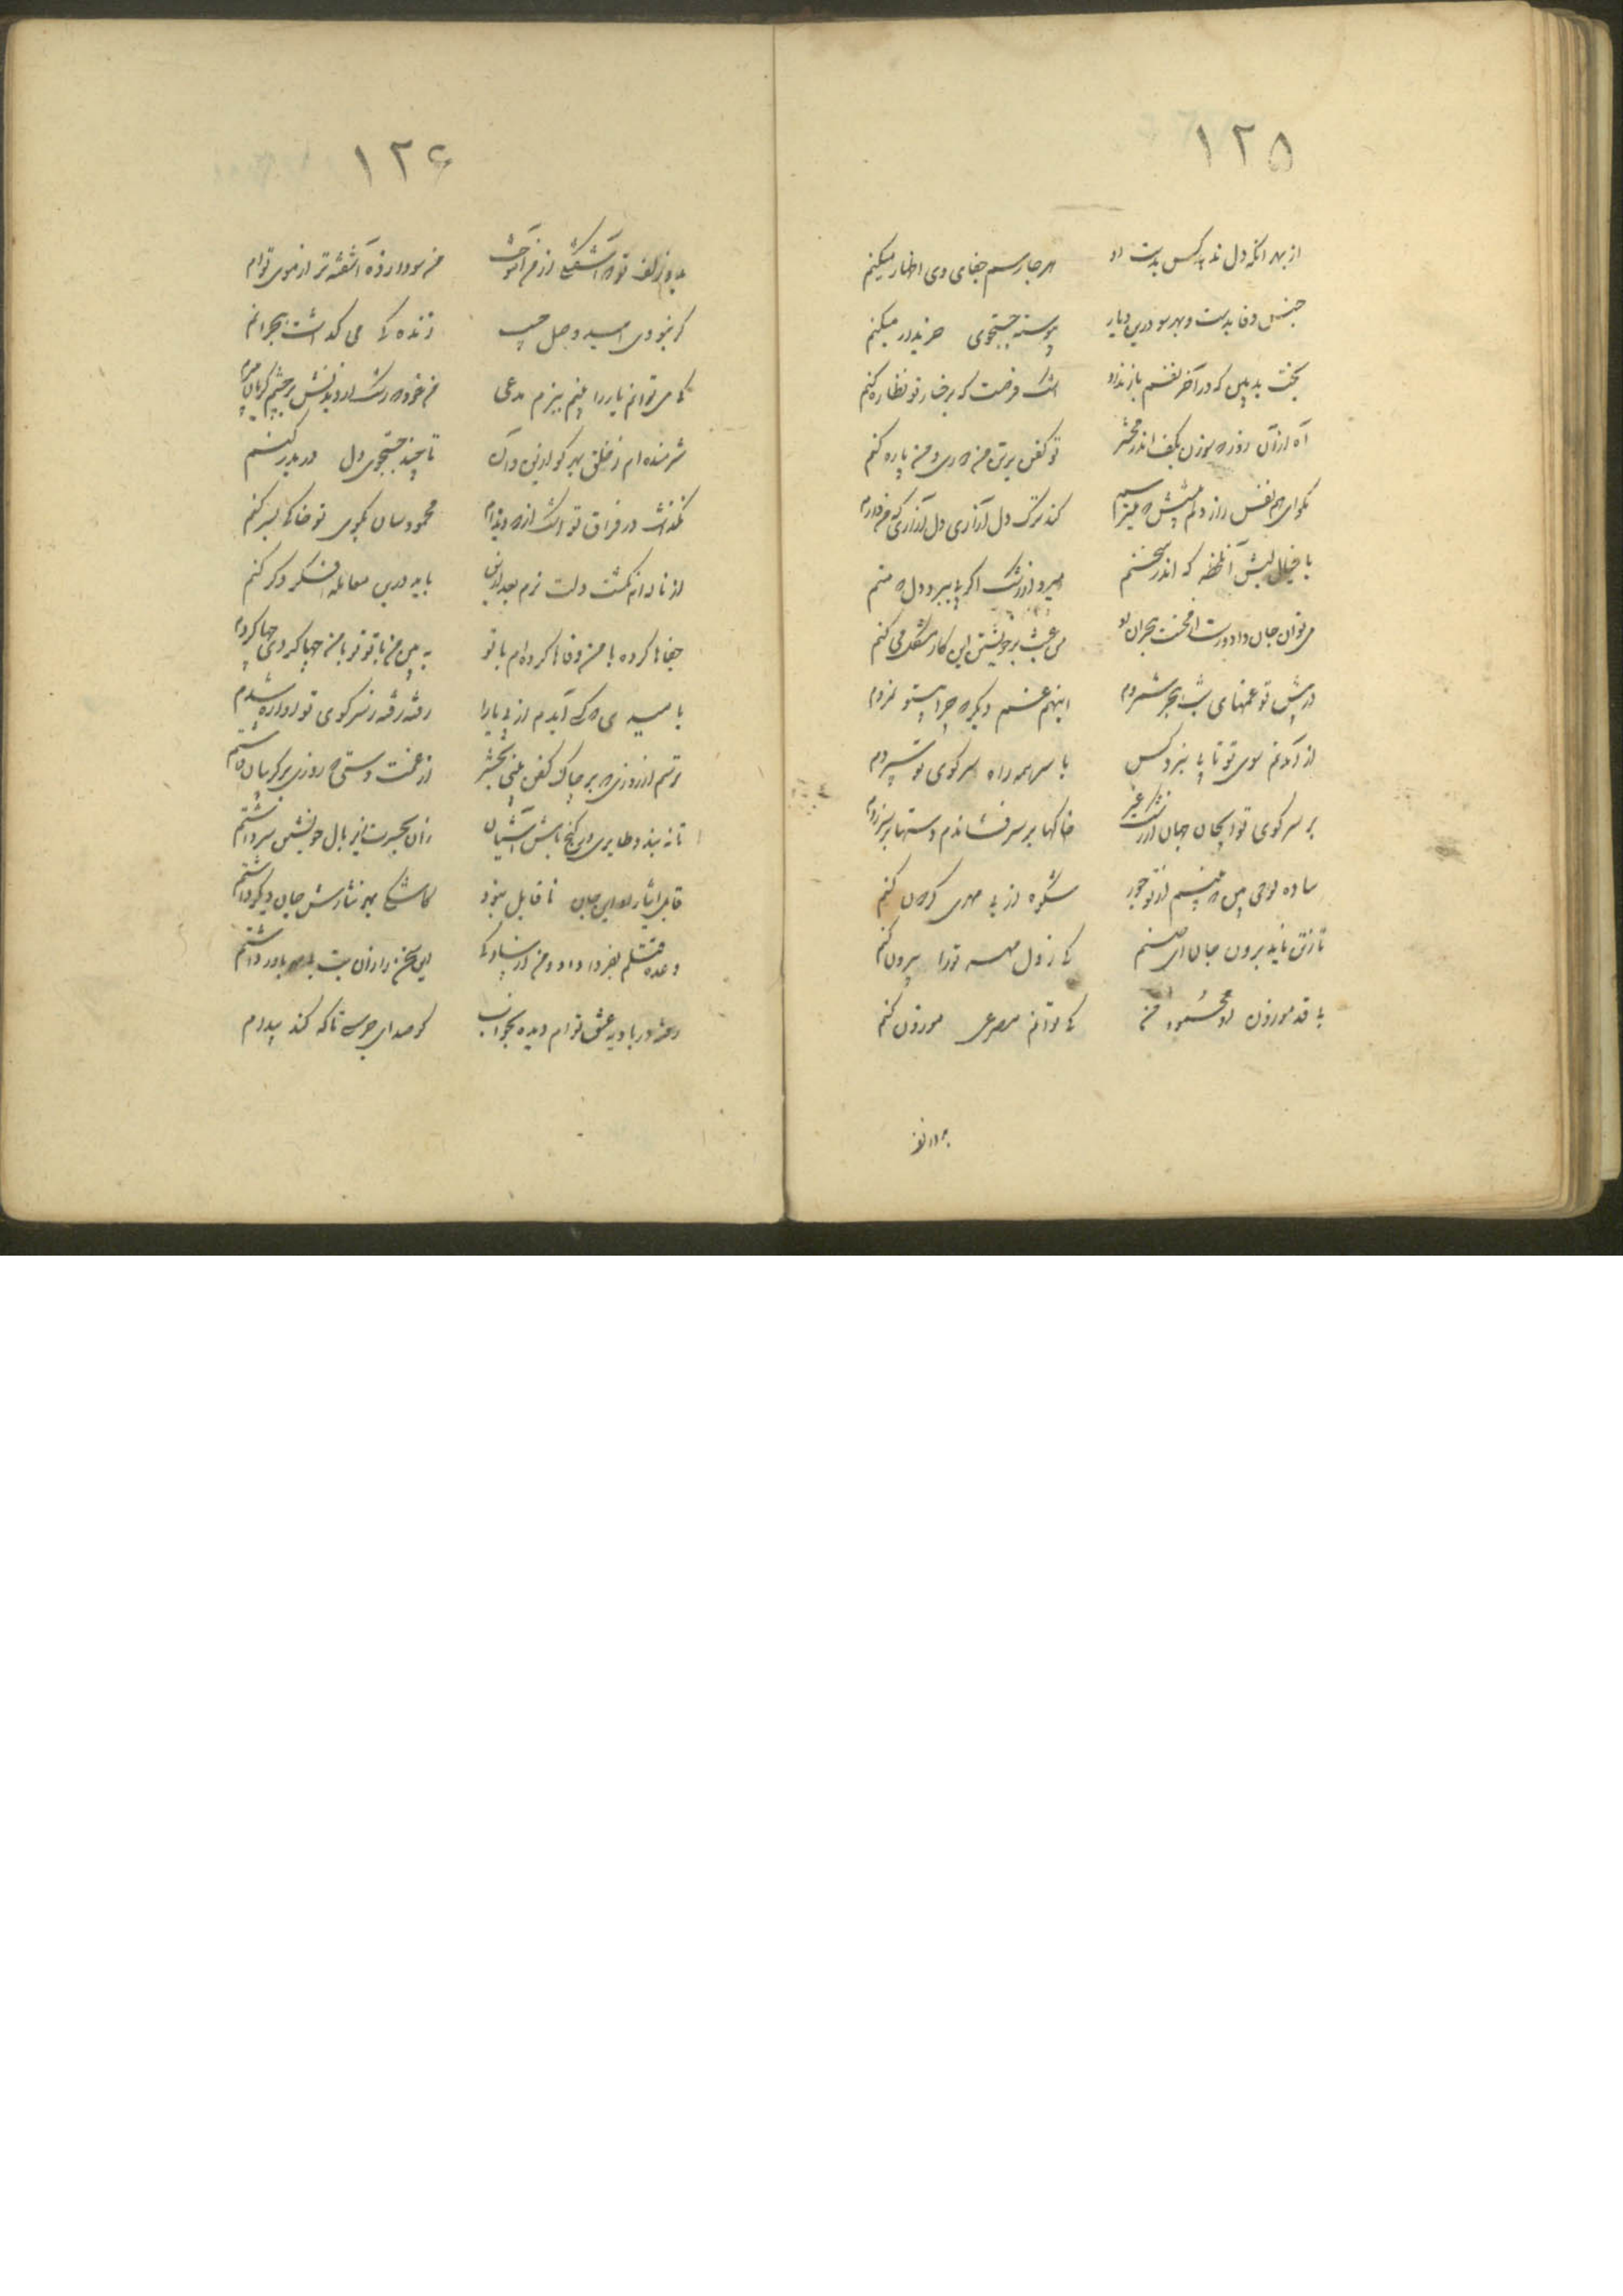 ۱۲۵
از بهر آنکه دل ندهد کس بدست او هر جا رسم جفای وی اظهار میکنم
جنس وفا بدست و بهر سو درین دیار پیوسته جستجوی خریدار میکنم
بخت بد بین که در آخر نفسم باز نداد آنقدر فرصت که برخسار تو نظاره کنم
آه از آن روز که بکف اندر محشر تو کفن بر تن من و من پاره کنم
بگو ای هم نفس راز دلم پیشش که میترسم کند ترک دل آزاری دل آزاری که من دارم
با خیال لبش آنلحظه که اندر سخنم میرود از رشک اگر پی ببرد دل منم
میتوان جان داد و رست از محنت هجران او من عبث بر خویشتن این کار مشکل می کنم
در پیش تو غمهای شب هجر شمردم اینهم غم دیگر که چرا پیش تو نمردم
از آمدنم سوی تو تا پی نبرد کس با سر همه راه سر کوی تو سپردم
بر سر کوی تو ایجان جهان از رشک غیر خاکها بر سر فشاندم دستها بر سر زدم
ساده لوحی بین که بینم از تو جور شکوه از بی مهری گردون کنم
تا ز تن ناید برون جان ای صنم کی ز دل مهر تو را بیرون کنم
با قد موزون او محمود من کی توانم مصرعی موزون کنم
۱۲۶
زلف تو که آشفتگی از من آموخت من سودا زده آشفته تر از موی توام
گر نبودی امید وصل حبیب زنده کی می گذاشت هجرانم
کی می توانم یار را بینم ببزم مدعی من خود که رشک از دیدنش بر چشم گریان میبرم
شرمنده ام ز خلق بهر کو ازین و آن تا چند جستجوی دل در بدر کنم
نگذاشت در فراق تو اشک از دیده ام محمود سان بکوی تو خاکی بسر کنم
از ناله ام نگشت دلت نرم بعد ازین باید درین معامله فکر دگر کنم
جفاها کرده با من وفاها کرده ام با تو ببین من با تو تو با من چها کردی چها کردم
رفته رفته ز سر کوی تو آواره شدم
ترسم از روزی که بر چاک کفن بینی بحشر از غمت دستی که روزی بر گریبان داشتم
تا نه بیند طایری در کنج باغش آشیان زان بحسرت زیر بال خویشتن سر داشتم
قابل ایثار او این جان ناقابل نبود کاشکی بهر نثارش جان دیگر داشتم
وعده قتلم بفردا داد و من از سادگی این سخن را زان بت بد مهر باور داشتم
در بادیه عشق توام دیده بخواب کو صدای جرسی تا که کند بیدارم